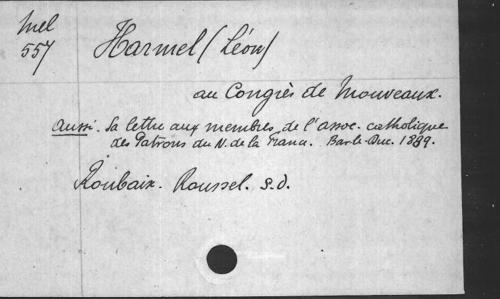 Mel
557
Harmel (Léon)
au Congrès de Mouveaux.
aussi. Sa lettre aux membres de l'assoc. catholique
des Patrons du N. de la France. Bar-le-Duc. 1889.
Roubaix. Roussel. s.d.